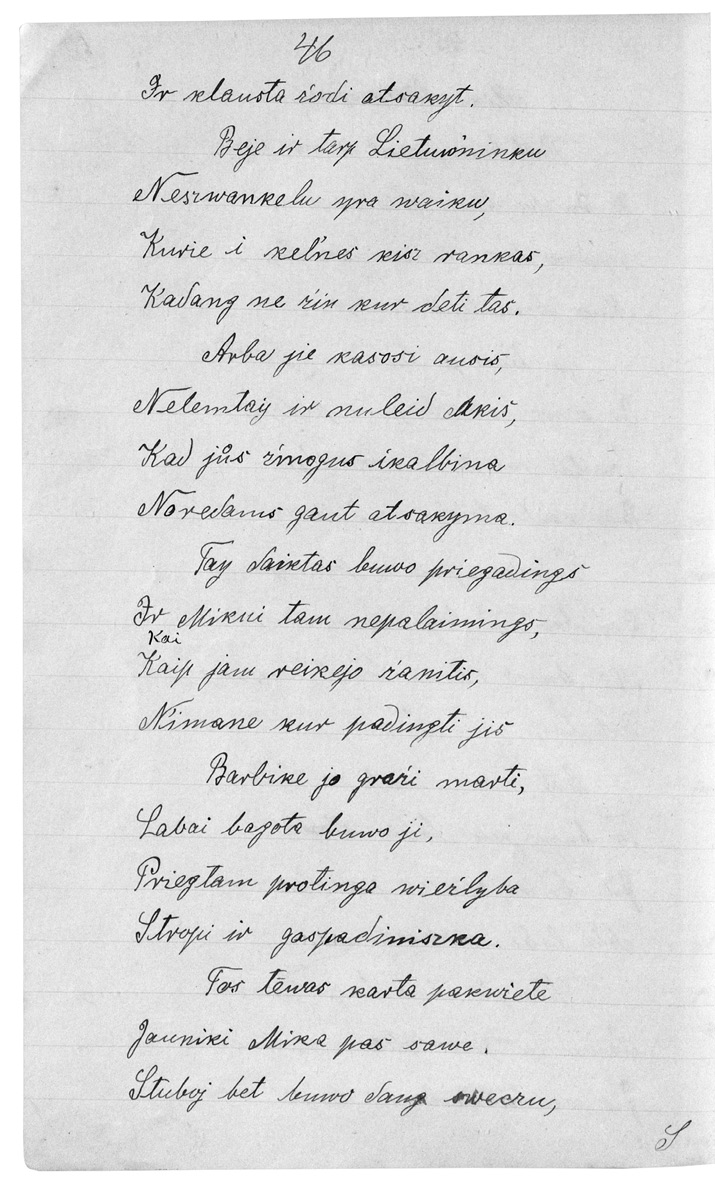 46
Ir klausta źodi atsakyt.
Beje ir tarp Lietuwninku
Neszwankelu yra waiku,
Kurie i kelnes kisz rankas,
Kadang ne źin kur deti tas.
Arba jie kasosi ausis,
Nelemtay ir nuleid Akis,
Kad jůs źmogus ikalbina
Noredams gaut atsakyma.
Tay daiktas buwo priegadings
Ir Mikui tam nepalaimings,
Kai
Kaip jam reikejo źanitis,
N'imane kur padingti jis
Barbike jo graźi marti,
Labai bagota buwo ji,
Priegtam protinga wieźlyba
Stropi ir gaspadiniszka.
Tos tēwas karta pakwiete
Jauniki Mika pas sawe.
Stuboj bet buwo daug sweczu,
S